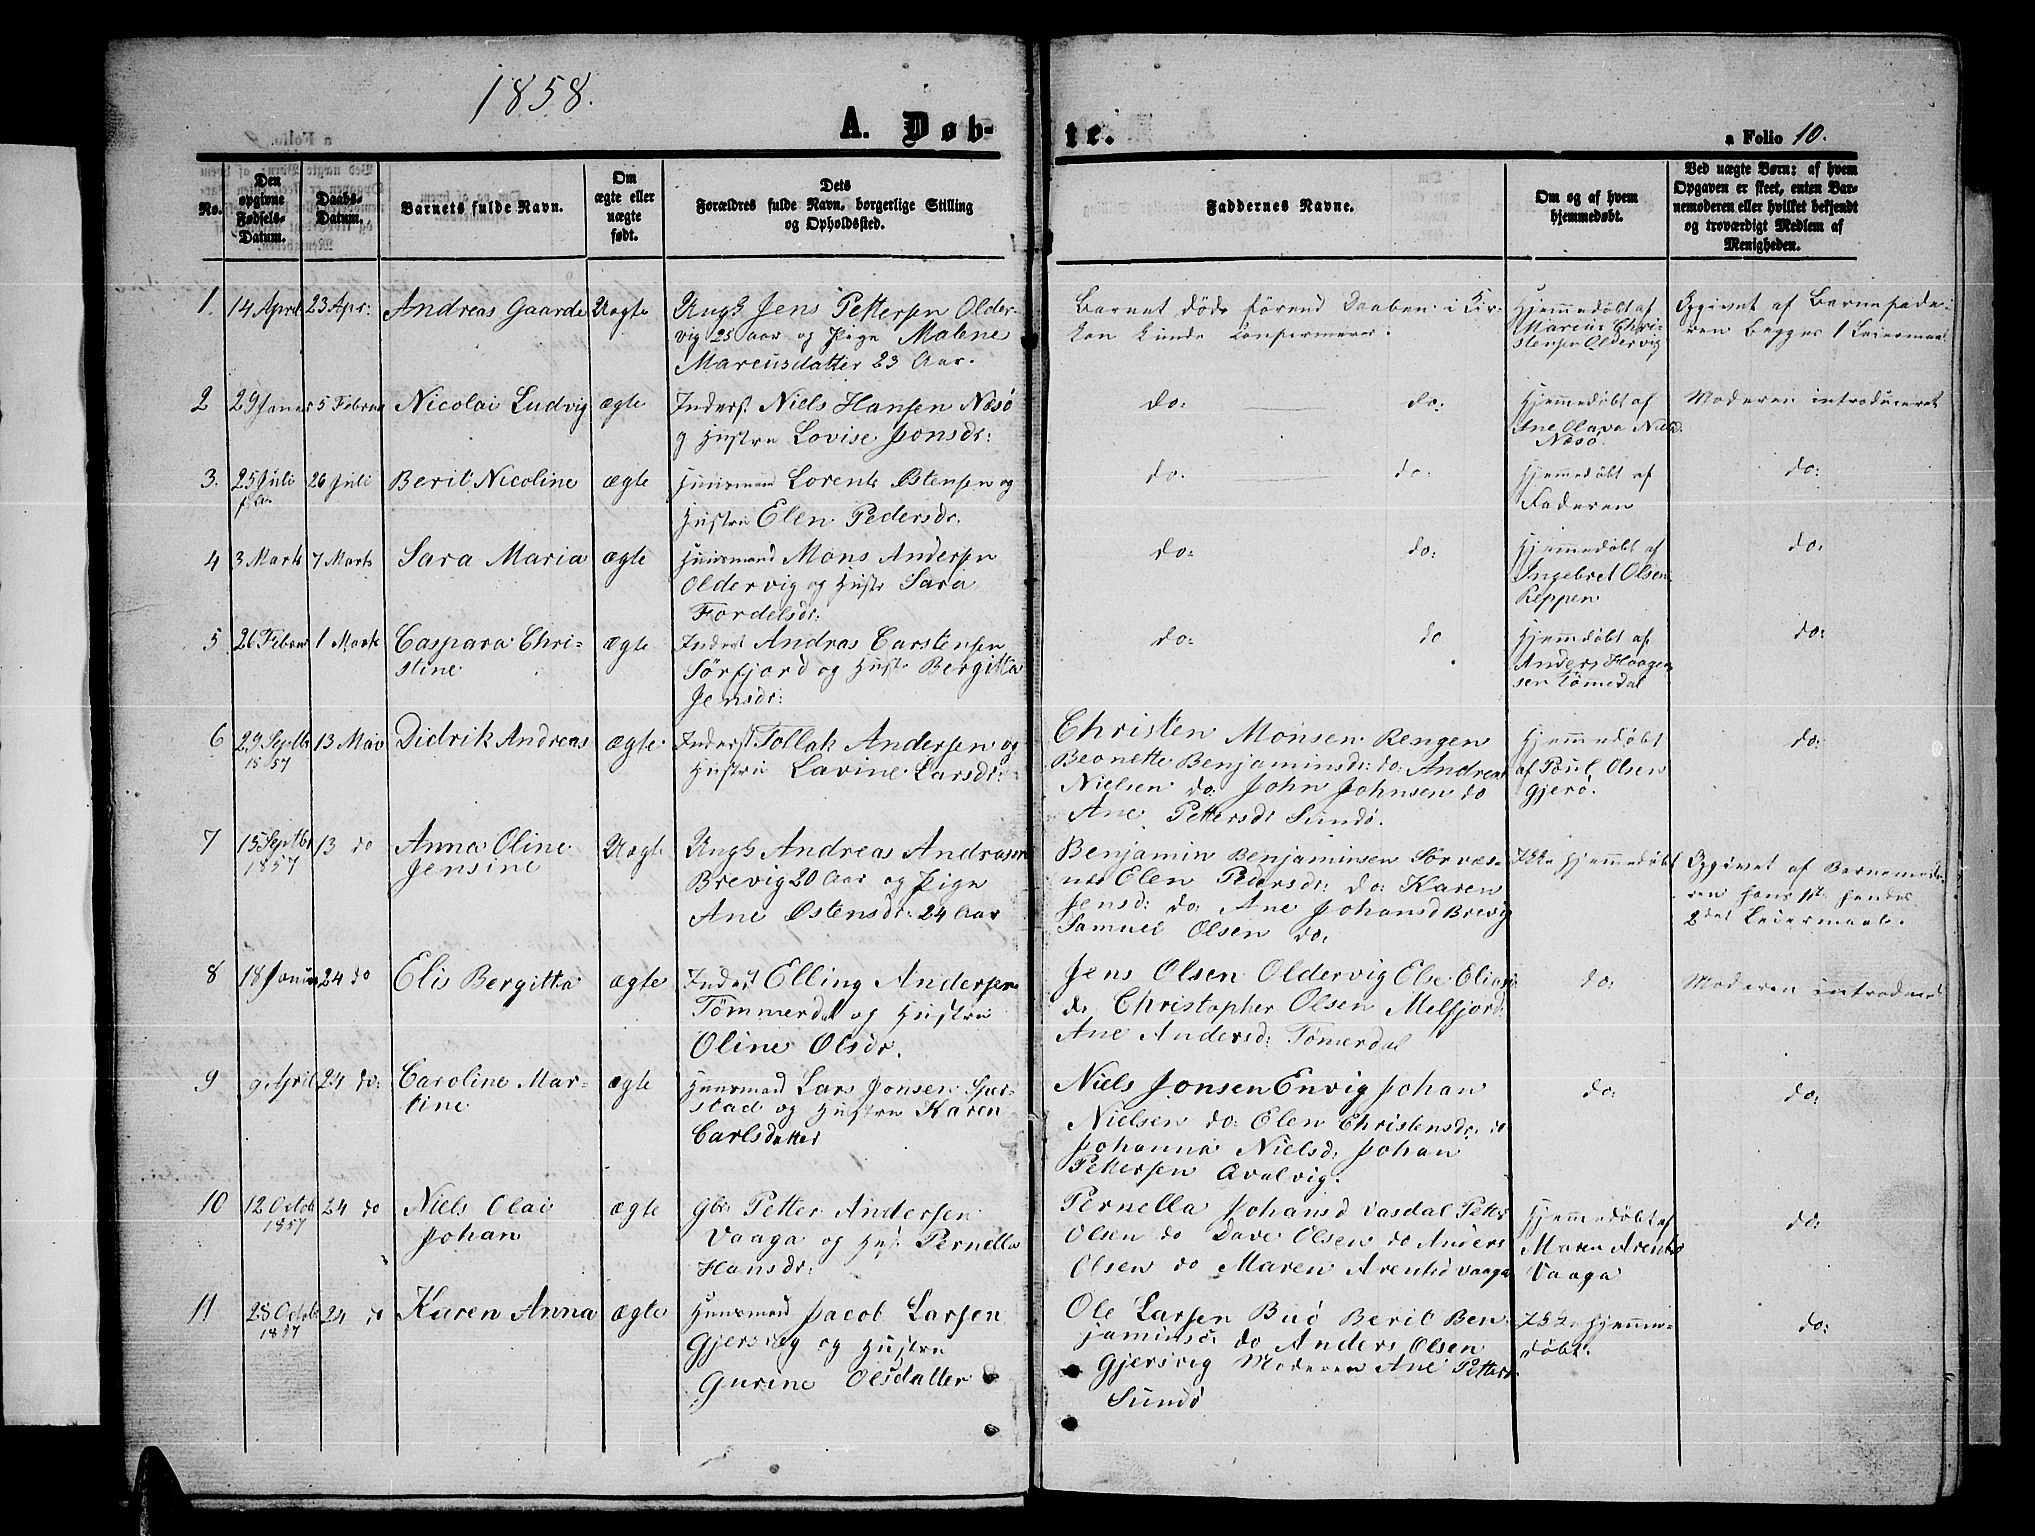 1858.
A. Døb-
te.
a Folio 10.
No.
Den opgivne Fødsels-Datum.
Daabs-Datum.
Barnets fulde Navn.
Om ægte eller uægte født.
Dets Forældres fulde Navn, borgerlige Stilling og Opholdssted.
Faddernes Navne.
Om og af hvem hjemmedøbt.
Ved uægte Børn: af hvem Opgaven er skeet, enten Barnemoderen eller hvilket bekjendt og troværdigt Medlem af Menigheden.
1. 14 April 23 Apr: Andreas Gaarde Uægte
Ungk Jens Pettersen Older-
vig 25 aar og Pige Malene
Marcusdatter 23 Aar.
Barnet døde förend Daaben i Kir-
ken kunde Confermeres:
Hjemmedøbt af
Marcus Chri-
stensen Oldervig
Opgivet af Barnefade-
ren begges 1 Leiermaal
2 29 Januar 5 Februar Nicolai Ludvig ægte
Inderst Niels Hansen Næsø
og Hustru Lovise Jonsdr:
do: do:
Hjemmedøbt af
Ane Olava Nielsd.
Næsø.
Moderen introduceret
3. 25 Juli 26 Juli Berit Nicoline ægte
Huusmand Lorents Østensen og
Hustru Elen Pedersdr.
do. do.
Hjemmedøbt af
Faderen
do:
4 3 Marts 7 Marts Sara Maria ægte
Huusmand Mons Andersen
Oldervig og Hustr Sara
Fordelsdr:
do: do:
Hjemmedøbt af
Ingebret Olsen
Reppen
do:
5 26 Febru 1 Marts Caspara Chri-
stine ægte
Inderst Andras Carstensen
Sørfjord og Hust Bergitta
Jensdr:
do: do
Hjemmdøbt af
Anders Haagen
sen Tömedal
do:
6 29 Septbr 1857 13 Mai Didrik Andreas ægte
Inderst Tollak Andersen og
Hustru Lavine Larsdr:
Christen Monsen Rengen
Beonette Benjaminsdr: do: Andreas
Nielsen do: John Johnsen do
Ane Pettersdr Sundö.
Hjemmedøbt
af Poul Olsen
Gjerö.
do:
7 15 Septbr 1857 13 do Anna Oline
Jensine Uægte
Ungk Andreas Andrasen
Brevig 20 Aar og Pige
Ane Østensdr: 24 Aar
Benjamin Benjaminsen Sörvæs-
Elen Pedersdr: do: Karen
Jensd: do: Ane Johansd Brevig
Samuel Olsen do.
Ikke hjemmedøbt
Opgivet af Barnemode-
ren hans 1ste hendes
2det Leiermaal.
8 18 Januar 24 do Elis Bergitta ægte
Inderst Elling Andersen
Tømmerdal og Hustru
Oline Olsdr.
Jens Olsen Oldervig Else Eliasd:
do Christopher Olsen Melfjord
Ane Andersd: Tømerdal
do:
Moderen introduceret
9 9 April 24 do: Caroline Mar-
tine ægte
Huusmand Lars Jonsen Sper-
stad og Hustru Karen
Carlsdatter
Niels Jonsen Envig Johan
Nielsen do: Elen Christensdr: do
Johanna Nielsd: Johan
Pettersen Qvalvig.
do:
do:
10 12 Octob 1857 24 do Niels Olai
Johan ægte
Gbr: Petter Andersen
Vaaga og Hust Pernella
Hansdr:
Pernella Johansd Vasdal Petter
Olsen do Dave Olsen do Anders
Olsen do Maren Arentsd Vaaga
Hjemmedøbt af
Maren Arentsd
Vaaga
do:
11 28 Octob 1857 24 do Karen Anna ægte
Huusmand Jacob Larsen
Gjersvig og Hustru
Gurine Olsdatter
Ole Larsen Buö Berit Ben-
jaminsd: do Anders Olsen
Gjersvig Moderen Ane Petters
Sundö
Ikke hjemme-
døbt.
do: